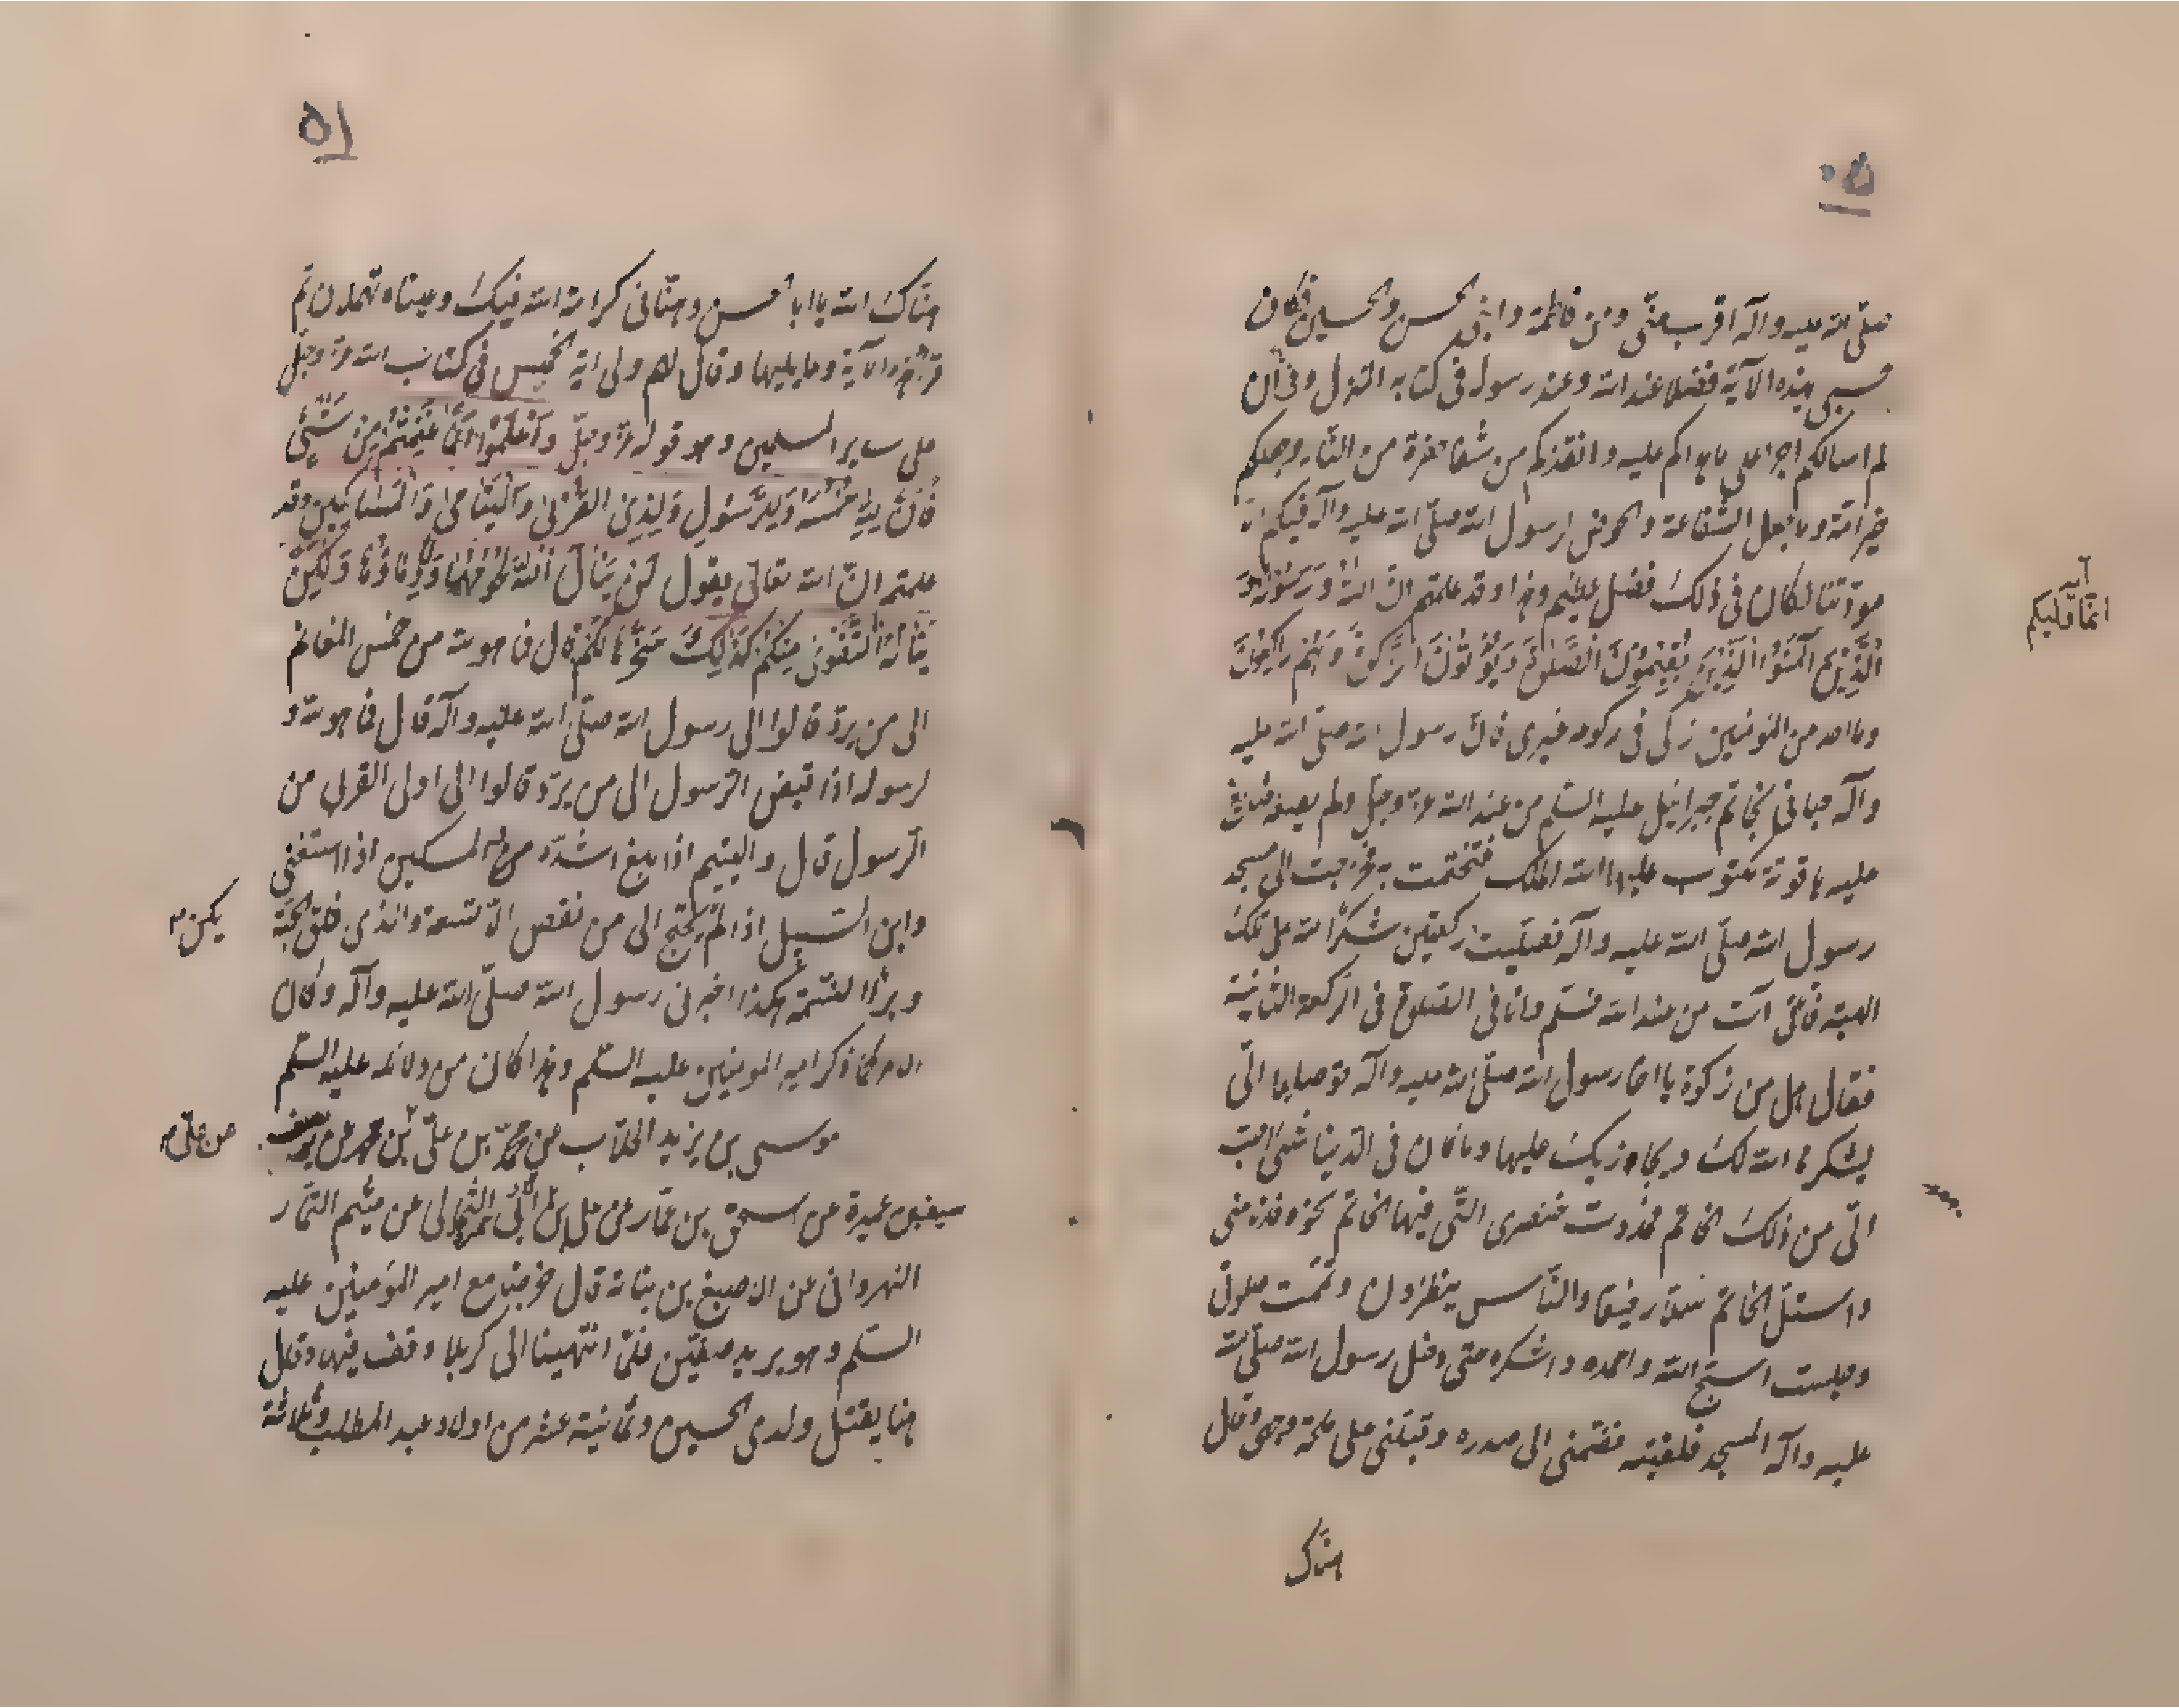 ٥٠
صلّى الله عليه وآله اقرب منّى ومن فاطمة وابنى الحسن والحسين فكان
حسبى بهذه الآية فضلا عند الله وعند رسوله فى كتابه المنزل وفى ان
لم اسالكم اجرا على ما هداكم عليه وانقذكم من شفا حفرة من النّار وجعلكم
خير امّة وما جعل الشّفاعة والحوض لرسول الله صلّى الله عليه وآله فيكم
مودّتنا لكان فى ذلك فضل عظيم وهذا وقد علمتم انّ اللهُ وَرَسُولُهُ وَ
الَّذِينَ آمَنُوا الَّذِينَ يُقِيمُونَ الصَّلوةَ وَيُؤْتُونَ الزَّكوةَ وَهُمْ رَاكِعُونَ
وما احد من المؤمنين زكى فى ركوعه غيرى فانّ رسول الله صلّى الله عليه
وآله حبانى بخاتم جبرائيل عليه السّلم من عند الله عزّ وجلّ ولم يصغه صائغ
عليه ياقوتة مكتوب عليها الله الملك فتختمت به وخرجت الى مسجد
رسول الله صلّى الله عليه وآله فصلّيت ركعتين شكرًا لله على تلك
الهبة فاتانى آت من عند الله فسلّم وانا فى الصّلوة فى الرّكعة الثانية
فقال هل من زكوة يا اخا رسول الله صلّى الله عليه وآله توصلها الىّ
يشكرها الله لك ويجازيك عليها وما كان فى الدّينا شئ احبّ
الىّ من ذلك الخاتم فمددت خنصرى الّتى فيها الخاتم نحوه فاخذه منى
واستلّ الخاتم سلّا رفيقا والنّاس ينظرون وتممت صلوتى
وجلست اسبّح الله واحمده واشكره حتى دخل رسول الله صلّى الله
عليه وآله المسجد فلقيته فضمّنى الى صدره وقبّلنى على بلجة وجهى وقال
هنّاك
انّما وليكم
٥١
هنّاك الله يا ابا الحسن وهنّانى كرامة الله فيك وعيناه تهملان ثم
قرء هذه الآية وما يليها وقال لهم ولى آية الخمس فى كتاب الله عزّ وجلّ
على ساير المسلمين وهو قوله عزّ وجلّ وَاعْلَمُوا أَنَّمَا غَنِمْتُمْ مِنْ شَيْئٍ
فَأَنَّ لِلّهِ خُمُسَهُ وَلِلرَّسُولِ وَلِذِى القُرْبى وَالْيَتَامى وَالْمَسَاكِينِ وقد
علمتم انّ الله تعالى يقول لَنْ يَنَالَ اللهَ لُحُومُهَا وَلَا دِمَاؤُهَا وَلَكِنْ
يَنَالُهُ التَّقْوى مِنْكُمْ كَذَلِكَ سَخَّرَهَا لَكُمْ قال فما هو لله من خمس المغانم
الى من يردّ قالوا الى رسول الله صلّى الله عليه وآله قال فما هو لله و
لرسوله اذا قبض الرّسول الى من يردّ قالوا الى اولى القربى من
الرّسول قال واليتيم اذا بلغ اشدّه والمسكين اذا استغنى
وابن السّبيل اذا لم يحتج الى من نقص التسعة والذى فلق الحبّة
وبرأ النّسمة هكذا اخبرنى رسول الله صلّى الله عليه وآله وكان
الامر كما ذكر امير المؤمنين عليه السّلم وهذا كان من دلائله عليه السّلم
موسى بن يزيد الحلّاب عن محمّد بن علىّ بن محمد عن يوسف
سيف بن عميرة عن اسحق بن عمّار عن على بن ابى حمزة الثّمالى عن ميثم التمّار
النهروانى عن الاصبغ بن نباتة قال خرجنا مع امير المؤمنين عليه
السّلم وهو يريد صفّين فلمّا انتهينا الى كربلا وقف فيها وقال
هنا يقتل ولدى الحسين وثمانية عشر من اولاد عبد المطلب وثلاثة
يكن م
عن على م